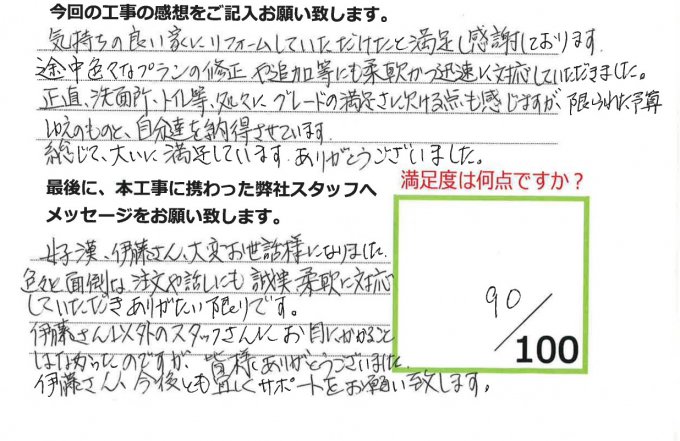 今回の工事の感想をご記入お願い致します。
気持ちの良い家にリフォームしていただけたと満足し感謝しております。
途中色々なプランの修正や追加等にも柔軟かつ迅速に対応していただきました。
正直、洗面所、トイレ等、処々に、グレードの満足さに欠ける点も感じますが、限られた予算
ゆえのものと、自分達を納得させています。
総じて、大いに満足しています。ありがとうございました。
最後に、本工事に携わった弊社スタッフへ
メッセージをお願い致します。
満足度は何点ですか？
好子漢、伊藤さん、大変お世話様になりました。
色々と面倒な注文や話しにも誠実、柔軟に対応
していただきありがたい限りです。
伊藤さん以外のスタッフさんに、お目にかかること
はなかったのですが、皆様にありがとうございました。
伊藤さん、今後とも宜しくサポートをお願い致します。
90/100